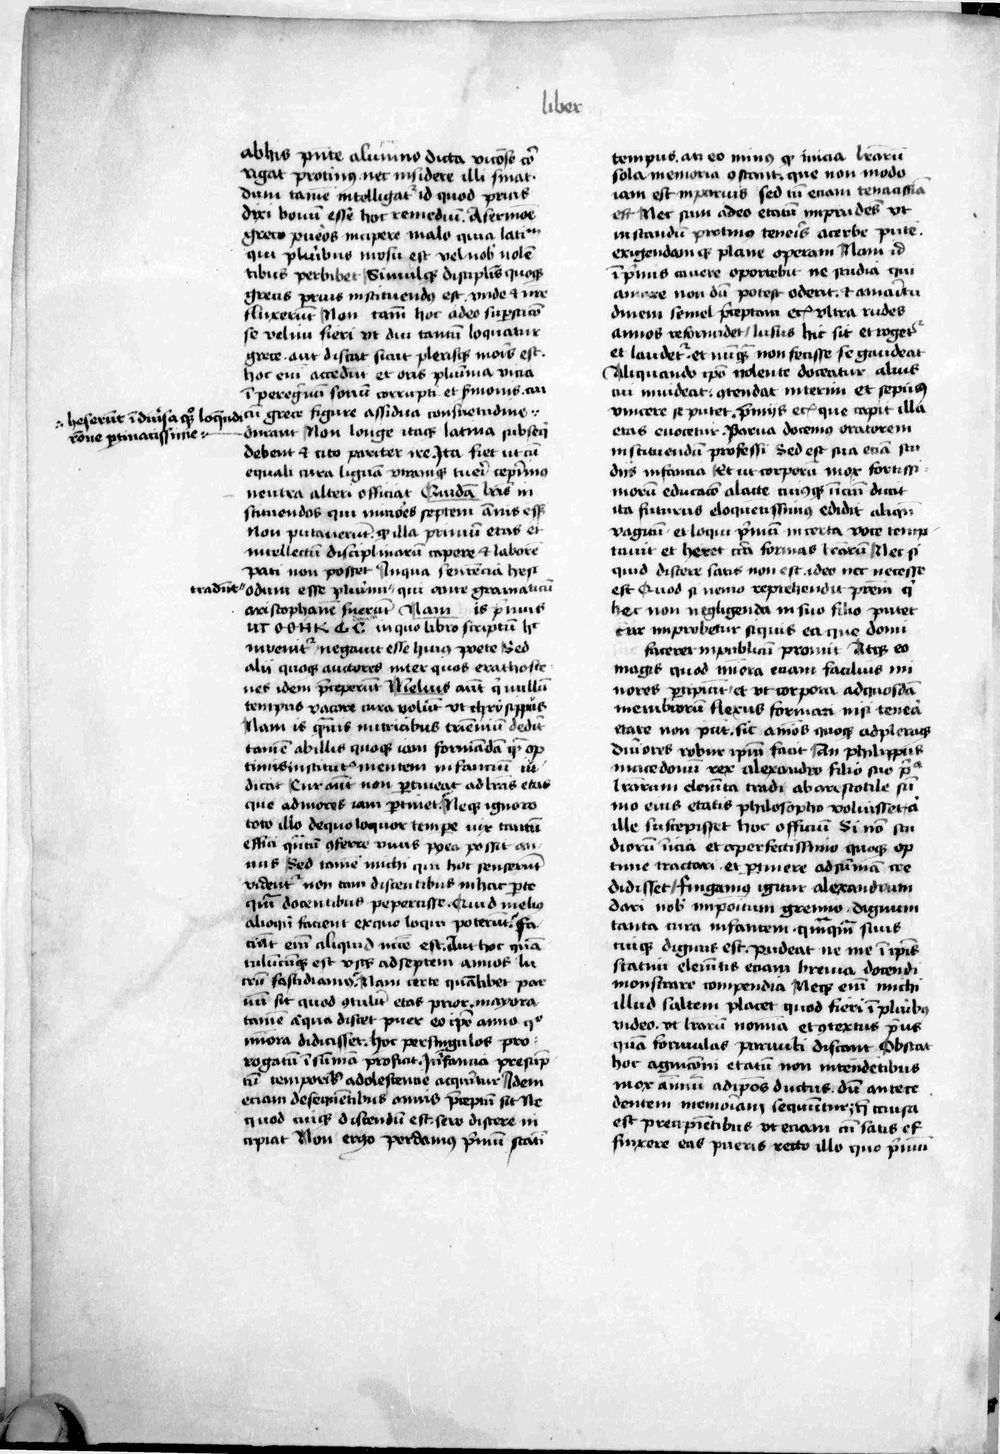 liber
abhis pñte alumno dicta vicose cō
rigat protinꝯ nec insidere illi sinat.
dum tamē intelligat id quod prius
dixi bonū esse hoc remediū. A sermōe
greco pueros incipere malo quia latinꝯ
qui pluribus in usu est vel nobꝭ nolē
tibus perbibet Simulqꝫ disciplīs quoqꝫ
grecis prius instituendꝯ est vnde ⁊ nr̄e
fluxerūt Non tam̄ hoc adeo supsticō
se velim fieri vt diu tantū loquatur
grece aut discat sicut plerisqꝫ moris est.
hoc eni accedūt et oris plurima vicia
ī peregrinū sonū corrupti et sermonis cui
cū grece figure assidua consuetudine
∴ heserūt ī diūsa qꝫ loquendi
rōne ꝑtinatissime ∴
durant Non longe itaqꝫ latina subseq̄
debent ⁊ cito pariter ire. Ita fiet ut cū
equali cura liguā vtramqꝫ tueri ceperimꝯ
neutra alteri officiat Quidā lrīs in
stituendos qui minores septem ānis essꝫ
Non putauerūt qꝫ illa primū etas et
intellectū disciplinarū capere ⁊ laborē
pati non posset In qua sentencia hesi
tradūt
odum esse plurimi qui ante gramaticū
aristophanē fuerūt Nam is primus
in quo libro scriptū hc
inuenit negauit esse huius poete Sed
alii quoqꝫ auctores inter quos erathoste
nes idem p̄ceperūt Melius aūt q̄ nullū
tempus vacare cura volūt vt chrysippus
Nam is q̄uis nutricibus trieniū dedit
tamē ab illis quoqꝫ iam formādā qꝫ op
timis institutꝭ mentem infantiū iu
dicat Cur aūt non ꝑtineat ad lrās etas
que ad mores iam ꝑtinet. Neqꝫ ignoro
toto illo de quo loquor tempe vix tantū
effici q̄ntū ꝯferre vnus postea possit an
nus Sed tamē michi qui hoc senserūt
vident̄ non tam discentibus in hac ꝑte
q̄ docentibus pepercisse. Quid melius
alioqn̄ facient ex quo loqui poterūt. Fa
ciāt em̄ aliquid nc̄e est. Aut hoc quā
tulūcūqꝫ est vsqꝫ ad septem annos lu
crū fastidiamꝯ Nam certe quālibet par
uū sit quod ꝯtulit etas prior. mayora
tamē aīqua discet puer eo ipo anno qͦ
minora didicisset. Hoc per singulos pro
rogatū ī sūmā proficit. Infancia presūp
tū temporis adolescentie acquirit̄ Idem
etiam de sequētibus annis p̄ceptū sit Ne
quod cuiqꝫ discendū est sero discere in
cipiat Non ergo perdamꝯ p̄mū statī
tempus. atꝫ eo minꝯ qꝫ inicia lrārū
sola memoria ꝯstant. que non modo
iam est in paruis sed tū etiam tenacissiā
est Nec sum adeo etatū imprudēs vt
instandū protinus teneris acerbe putē.
exigendamqꝫ plane operam Nam id
ī p̄mis cauere oportebit ne studia qui
amare non dū potest oderit. ⁊ amaritu
dinem semel p̄ceptam etꝫ vltra rudes
annos reformidet lusus hic sit et rogetꝰ
et laudetꝰ et nūqꝫ non fecisse se gaudeat
Aliquando ipō nolente doceatur alius
cui inuideat. ꝯtendat interim et sepiꝯ
vincere se putet. p̄mijs etꝫ que capit illa
etas euocetur. Parua docemꝯ oratorem
instituendū professi Sed est sua etiā stu
dijs infancia Et ut corporū mox fortissi
morū educacō a lacte cuiqꝫ iniciū ducit
ita futurus eloquētissimꝯ edidit aliqn̄
vagitū et loqui p̄mū incerta voce temp
tauit et hesit cir̄a formas lrārū Nec si
quid discere satis non est. ideo nec necesse
est Quod si nemo reprehendit p̄rem q̄
hec non negligenda in suo filio putet
cur improbetur si quis ea que domi
faceret in publicū promit Atqꝫ eo
magis quod minora etiam facilius mi
nores ꝑcipiūt et vt corpora ad quosdā
membrorū flexus formari nisi tenera
etate non pūt. sic aīos quoqꝫ ad pleraqꝫ
duriores robur ipm̄ facit An philippus
macedonū rex alexandro filio suo p̄ª
lrārum elemēta tradi ab aristotile sū
mo eius etatis philosopho voluisset aͭ
ille suscepisset hoc officiū Si nō stu
diorū īicia et a perfectissimo quoqꝫ op
time tractari et ꝑtinere ad sūmā cre
didisset. Fingamꝯ igitur alexandrum
dari nobꝭ impositum gremio. dignum
tanta cura infantem. q̄mq̄m suus
cuiqꝫ dignus est. Pudeat ne me ī ipīs
statim elemētis etiam breuia docendi
monstrare compendia Neqꝫ em̄ michi
illud saltem placet quod fieri ī pluribꝯ
video. vt lrārū nomīa et ꝯtextus p̄us
quā formulas paruuli discant Obstat
hoc agnicōni etatū non intendētibus
mox animū ad ipōs ductus. dū antece
dentem memoriam sequūtur, q̄ causa
est precipiētibus vt etiam cū satis ef
finxere eas pueris recto illo quo p̄imū